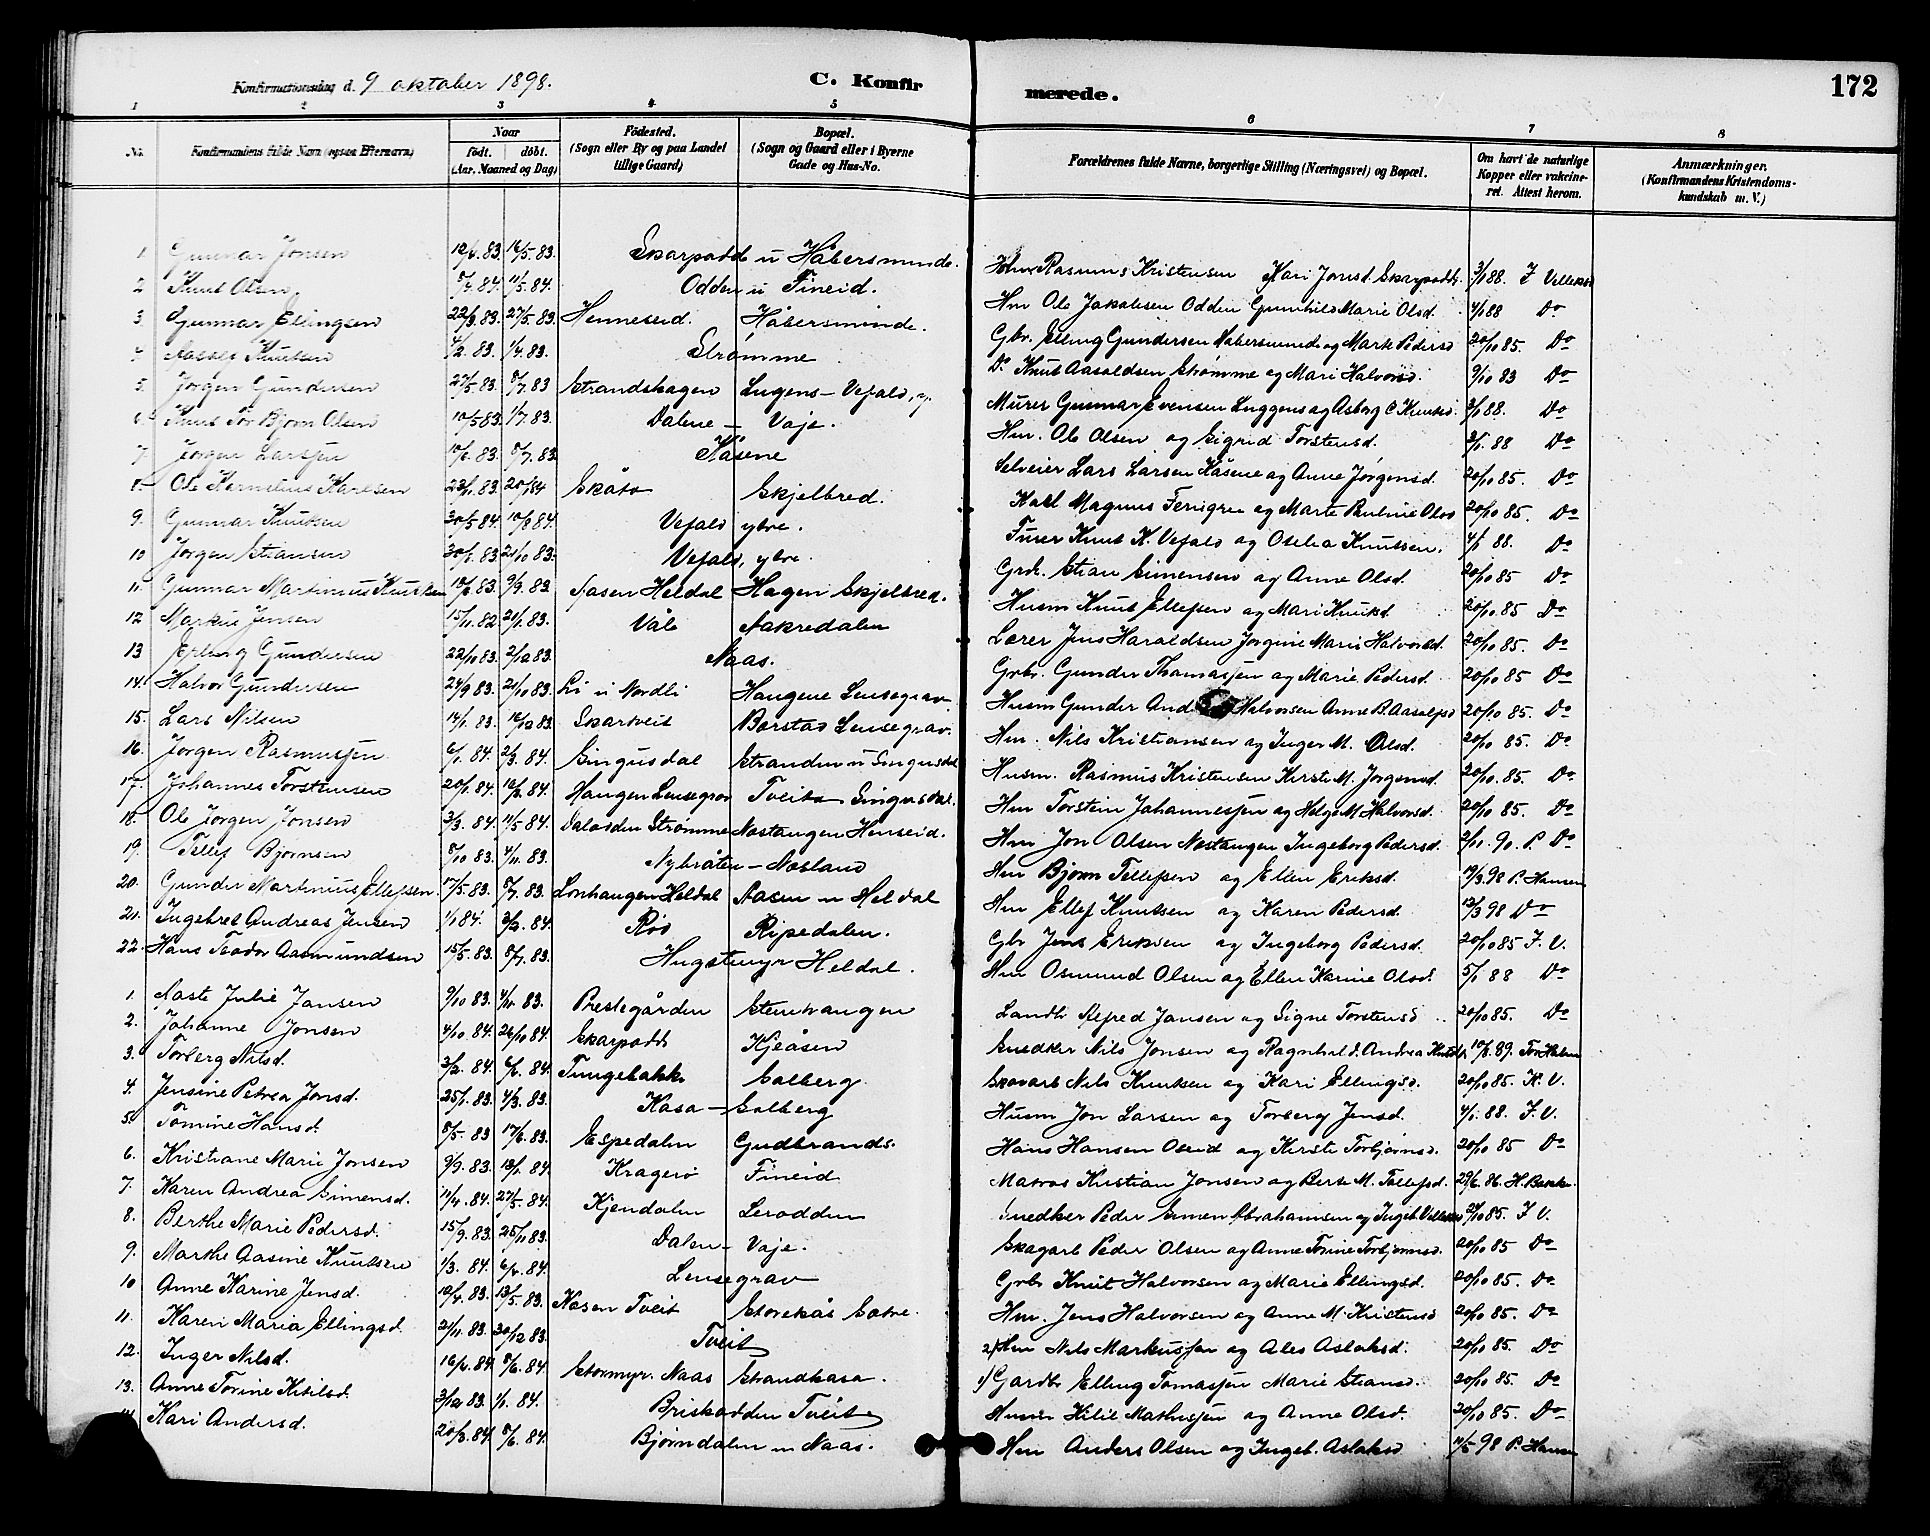 Konfirmationsdag d. 9 oktober 1898. C. Konfirmerede. 172
1 2 3 4 5 6 7 8
No. Konfirmandens fulde Navn (ogsaa Efternavn) Naar født. døbt. (Aar, Maaned og Dag) Fødested. (Sogn eller By og paa Landet tillige Gaard) Bopæl. (Sogn og Gaard eller i Byerne Gade og Hus-No. Forældrenes fulde Navne, borgerlige Stilling (Næringsvei) og Bopæl. Om havt de naturlige Kopper eller vakcineret. Attest herom. Anmærkninger. (Konfirmandens Kristendomskundskab m. V.)
1. Gunnar Jonsen 16/5 83. Skarpodd u Håbersminde. Rasmus Kristensen Kari Jonsd. Skarpodd 3/1 88. F
2 Knut Olsen 11/5 84. Odden u Fineid. Hm Ole Jakobsen Odden Gunhild Marie Olsd. 4/1 88 Do
3. Gunnar Ellingsen 22/3 83. 27/5 83. Henneseid. Håbersminde. Gbr. Elling Gundersen og Marte Pedersd 20/10 85. Do
4 Knutsen 4/2 83. 1/4 83. Strømme Do Knut Aasoldsen Strømme og Mari Halvorsd. 9/10 83 Do
5. Jørgen Gundersen 27/5 83. 8/7 83 Strandhagen Lugens - Vefald, y. Murer Gunnar Evensen og Asborg Knutsd. 3/1 88. Do
6. Knut Tor Bjørn Olsen 10/5 83 1/7 83. Dalene - Vaje. Hm. Ole Olsen og Sigrid Torstensd. 3/1 88 Do
7. Jørgen Larsen 17/6 83. 8/7 83 Kåsene Selveier Lars Larsen Kåsene og Anne Jørgensd. 20/10 85. Do
8. Ole Kornelius Karlsen 23/11 83. 20/1 84 Skåtø Skjelbred. Karl Magnus og Marte Pauline Olsd 20/10 85. Do
9. Gunnar Knutsen 30/5 84. 10/8 84. Vefald ytre. Knut K. Vefald og Oselia Knutsen. 4/1 88. Do
10 Jørgen Stiansen 21/10 83. Vefald, ytre. Grdr. Stian Simensen og Anne Olsd. 20/10 85 Do
11. Gunnar Martinius Knutsen 10/6 83. 9/9 83 Aasen Heldal Hagen Skjelbred. Husm Knut Ellefsen og Mari Knutsd. 20/10 85 Do
12 Markus Jensen 15/11 82 21/1 83. Våle Aakredalen Lærer Jens Haraldsen Jorgine Marie Halvorsd. 20/10 85. Do
13 Gundersen 22/10 83. 2/12 83. Naas. Grbr. Gunder Thomassen og Marie Pedersd. 20/10 85 Do
14. Halvor Gundersen 24/9 83. 21/10 83. Li u Nordli Haugene Lensegrav Husm Gunder Halvorsen Anne B. Aasulfsd 20/10 85. Do
15. Lars Nilsen 14/1 83. 16/12 83. Skarkveit Borstad Lensegrav. Hm. Nils Kristiansen og Inger M. Olsd. 20/10 85. Do
16. Jørgen Rasmussen 6/1 84. 2/3 84. Singusdal Stranden u Singusdal Husm. Rasmus Kristensen Kirsti M. Jørgensd. 20/10 85. Do
17. Johannes Torstensen 20/1 84. 16/3 84. Haugen Lensegrav Tveit Singusdal. Hm Torstein Johannessen og Helge M Halvorsd. 20/10 85. Do
18. Ole Jørgen Jonsen 3/3 84. 11/5 84. Dalodden Strømme Nostangen Henseid. Hm Jon Olsen Nostangen Ingeborg Pedersd. 2/11 90. P. Do
19. Tellef Bjørnsen 8/10 83. 4/11 83. Nybråten - Næsland Hm Bjørn Tellefsen og Ellen Eriksd. 13/3 98 P. Hansen
20. Gunder Martinius Ellefsen. 17/5 83. 8/7 83. Lonhaugen Heldal Aasen u Heldal Hm Ellef Knutsen og Karen Pedersd. 13/3 98 Do
21. Ingebret Andreas Jensen 1/1 84. 3/2 84. Rød Ripedalen. Gbr Jens Eriksen og Ingeborg Pedersd. 20/10 85 F. V.
22. Hans Teodor Aasmundsen 15/5 83. 8/7 83. Hugstmyr Heldal. Hm Osmund Olsen og Ellen Karine Olsd. 5/1 88 Do
1. Aaste Julie Jansen 9/10 83. 4/11 83. Prestegården Stenhaugen Landh. Alfred Jansen og Signe Torstensd 20/10 85. Do
2. Johanne Jonsen 4/10 84. 26/10 84. Skarpodd Kjeåsen Snedker Nils Jonsen og Ragnhild Andrea 10/8 89.
3. Torberg Nilsd. 3/2 84. 6/4 84. Tungebakk Solberg Skovarb Nils Knutsen og Kari Ellingsd. 20/10 85. F. V.
4. Jensine Petrea Jonsd. 25/1 83. 4/3 83. Kasa - Solberg Husm Jon Larsen og Torberg Jensd. 4/1 88. F. V.
5. Tomine Hansd. 8/5 83 17/6 83. Espedalen Gudbrands. Hans Hansen Oseid og Kirste Torbjørnsd. 20/10 85 Do
6. Kristiane Marie Jonsen 9/9 83. 13/1 84. Kragerø Fineid Matros Kristian Jonsen og Berte M. Tellefsd. 29/6 86. H. Bakke.
7. Karen Andrea Simensd. 11/4 84. 27/5 84. Kjendalen Lerodden Snedker Peder Simen Abrahamsen og Ingeb. 20/10 85. F V.
8. Berthe Marie Pedersd. 15/9 83. 25/11 83. Dalen - Vaje. Skogarb Peder Olsen og Anne Tonine Torbjørnsd. 20/10 85 Do
9. Marthe Aasine Knutsen 1/3 84. 6/4 84. Lensegrav Grbr Knut Halvorsen og Marie Ellingsd. 20/10 85. Do
10 Anne Karine Jensd. 10/4 83. 13/5 83. Kåsen Tveit Storekås Sætre. Hm. Jens Halvorsen og Anne M. Kristensd 20/10 85. Do
11. Karen Maria Ellingsd. 21/11 83. 30/12 83. Tveit 2) Hm Nils Markussen og Ales Aslaksd. 20/10 85. Do
12. Inger Nilsd. 16/4 84 8/6 84. Stormyr. Naas Strandkasa. 1) Gardbr Elling Tomassen Marie Stiansd. 20/10 85. Do
13. Anne Tonine Kitilsd. 3/12 83. 1/1 84. Briskodden Tveit Husm Kitil Mathissen og Anne Olsd. 20/10 85. Do
14 Kari Andersd. 20/3 84. 8/6 84. Bjørndalen u Naas. Hm Anders Olsen og Ingeb. Aslaksd 11/5 98 P. Hansen